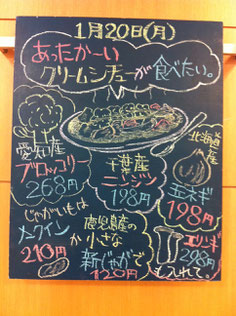 1月20日(月)
あったかーい
クリームシチューが食べたい。
愛知産
ブロッコリ
268円
千葉産
ニンジン
198円
北海道産
玉ネギ
198円
じゃがいもは
メークイン
210円
鹿児島産の
か小さな
新じゃがで
120円
エリンギ
298円
も入れて。